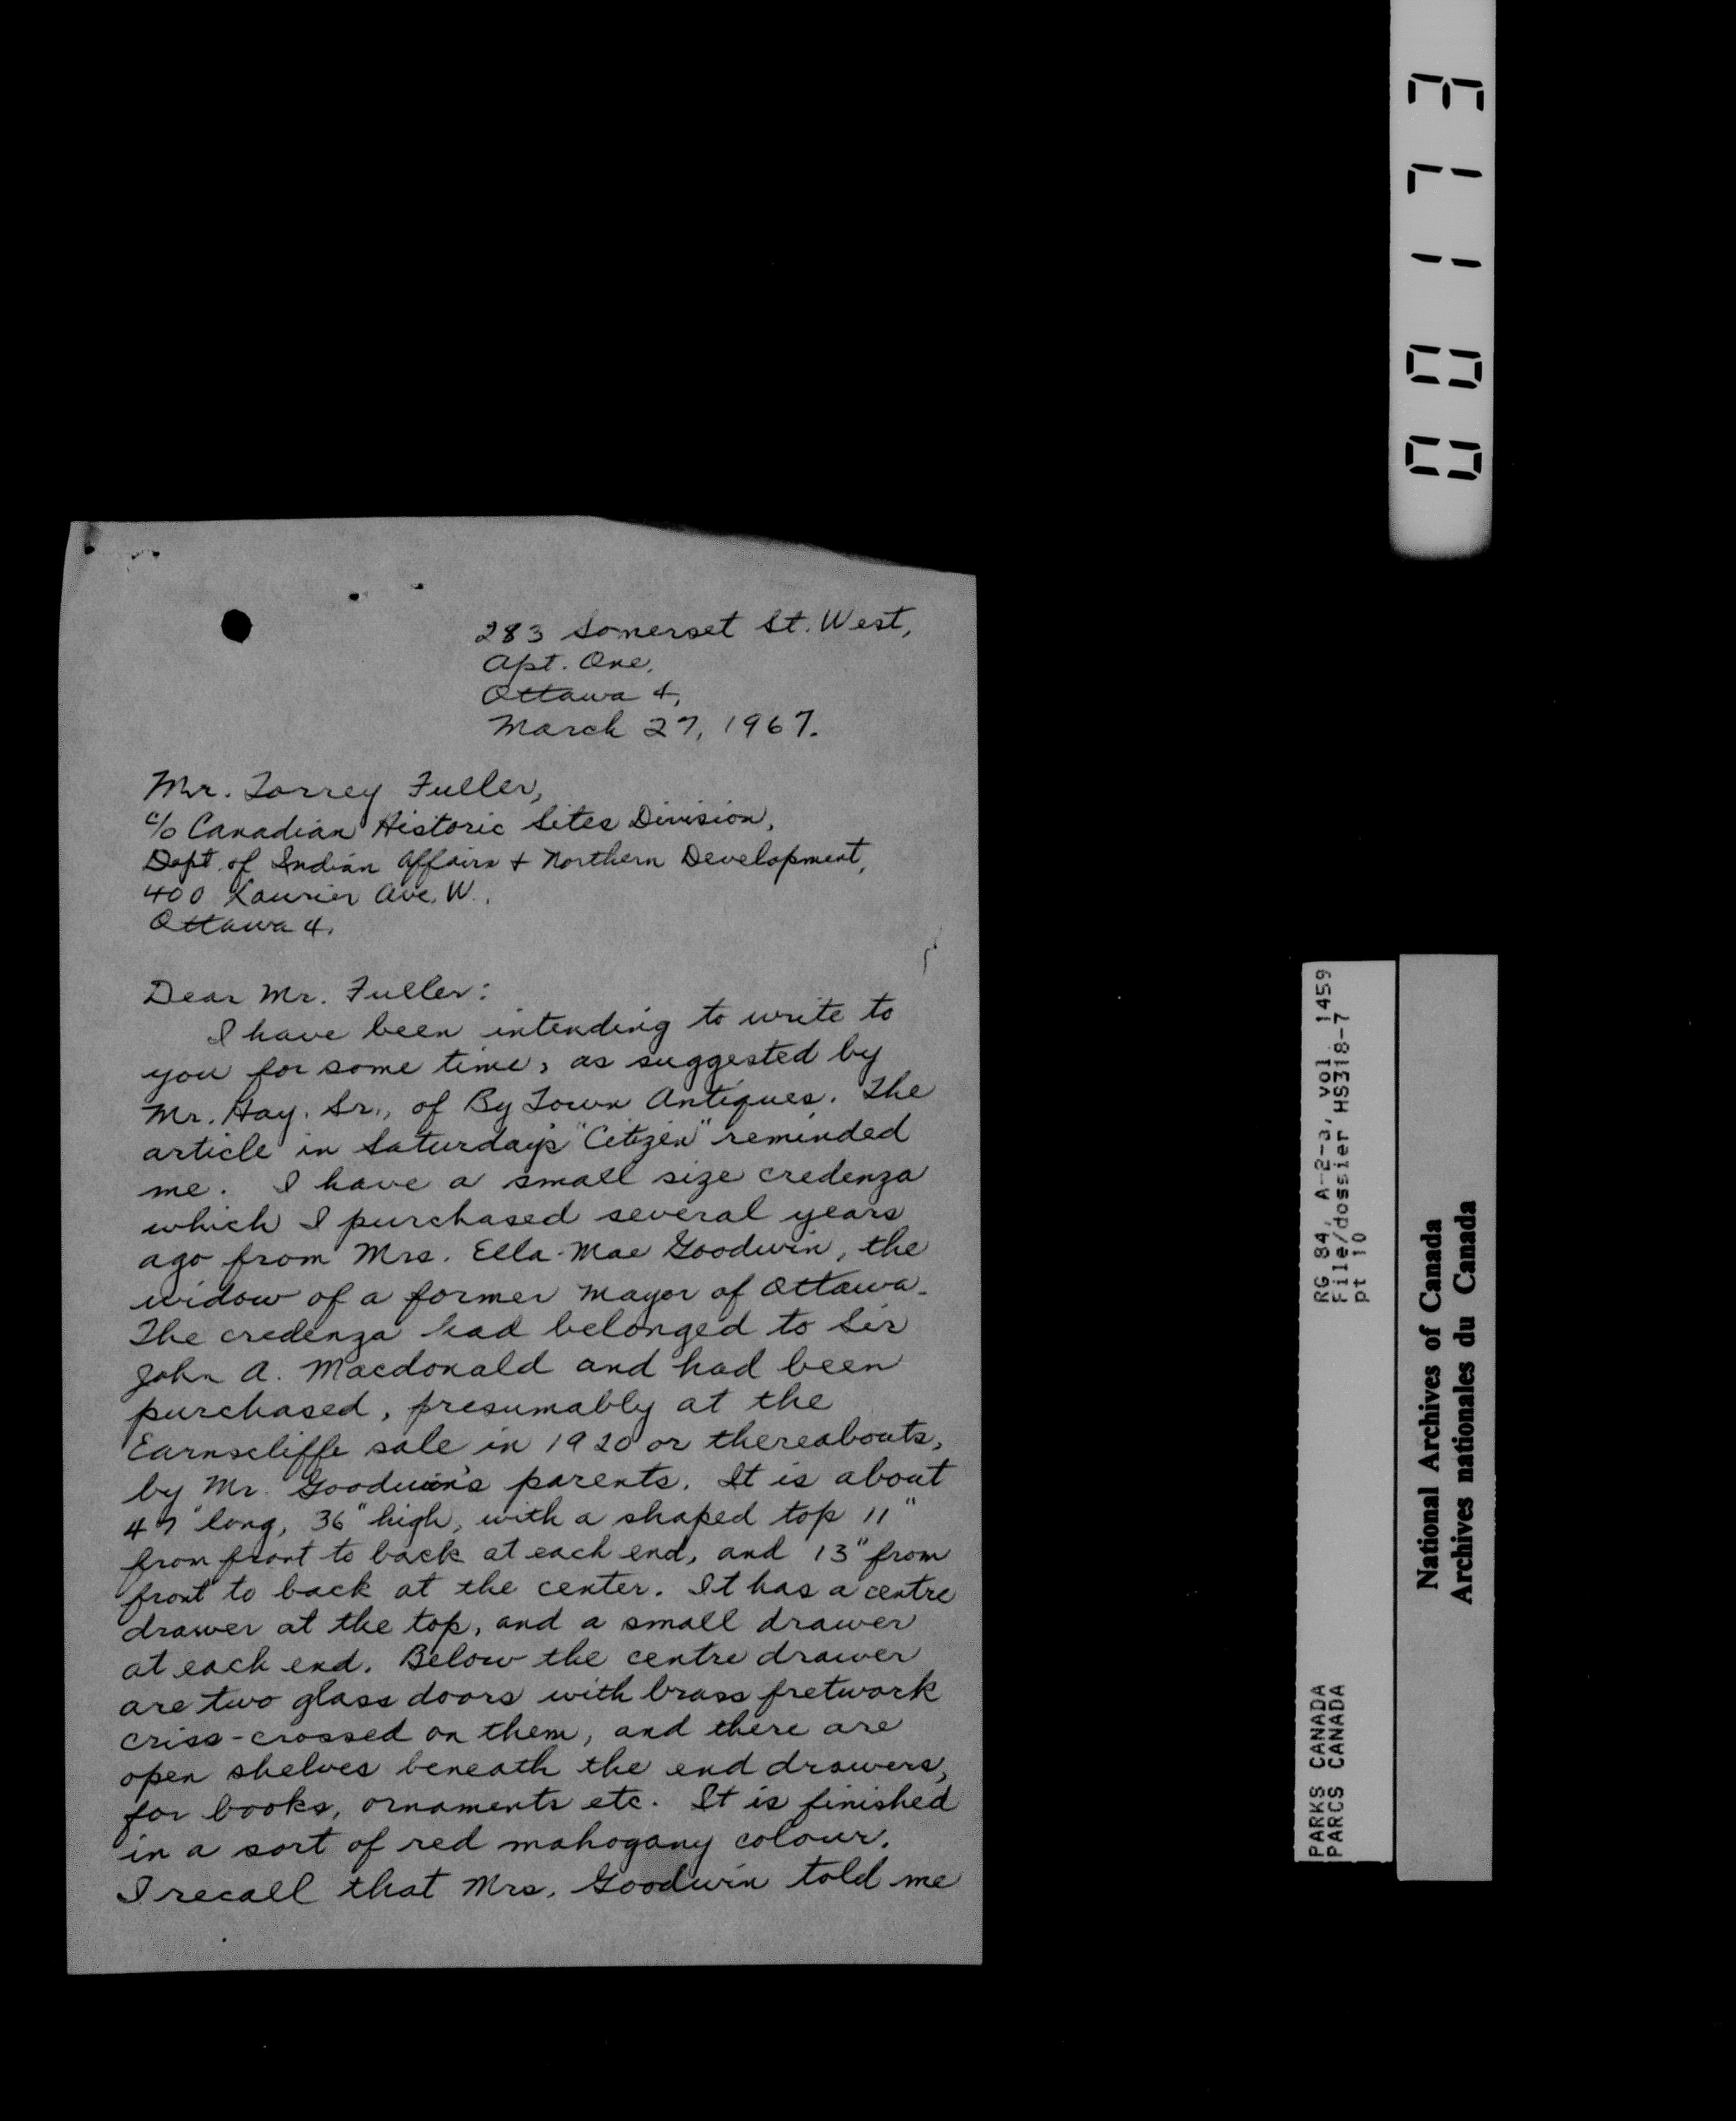 283 Somerset St. West,
Apt. One,
Ottawa 4,
March 27, 1967.
Mr. Torrey Fuller,
c/o Canadian Historic Sites Division,
Dept. of Indian Affairs + Northern Development,
400 Laurier Ave. W.,
Ottawa 4.
Dear Mr. Fuller:
I have been intending to write to
you for some time, as suggested by
Mr. Hay. Sr., of By Town Antiques. The
article in Saturday's "Citizen" reminded
me. I have a small size credenza
which I purchased several years
ago from Mrs. Ella-Mae Goodwin, the
widow of a former Mayor of Ottawa.
The credenza had belonged to Sir
John A. Macdonald and had been
purchased, presumably at the
Earnscliffe sale in 1920 or thereabouts,
by Mr. Goodwin's parents. It is about
47" long, 36" high, with a shaped top 11"
from front to back at each end, and 13" from
front to back at the center. It has a centre
drawer at the top, and a small drawer
at each end. Below the centre drawer
are two glass doors with brass fretwork
criss-crossed on them, and there are
open shelves beneath the end drawers,
for books, ornaments etc. It is finished
in a sort of red mahogany colour.
I recall that Mrs. Goodwin told me
00173
RG 84, A-2-a, vol. 1459
File/dossier HS318-7
pt 10
PARKS CANADA
PARCS CANADA
National Archives of Canada
Archives nationales du Canada